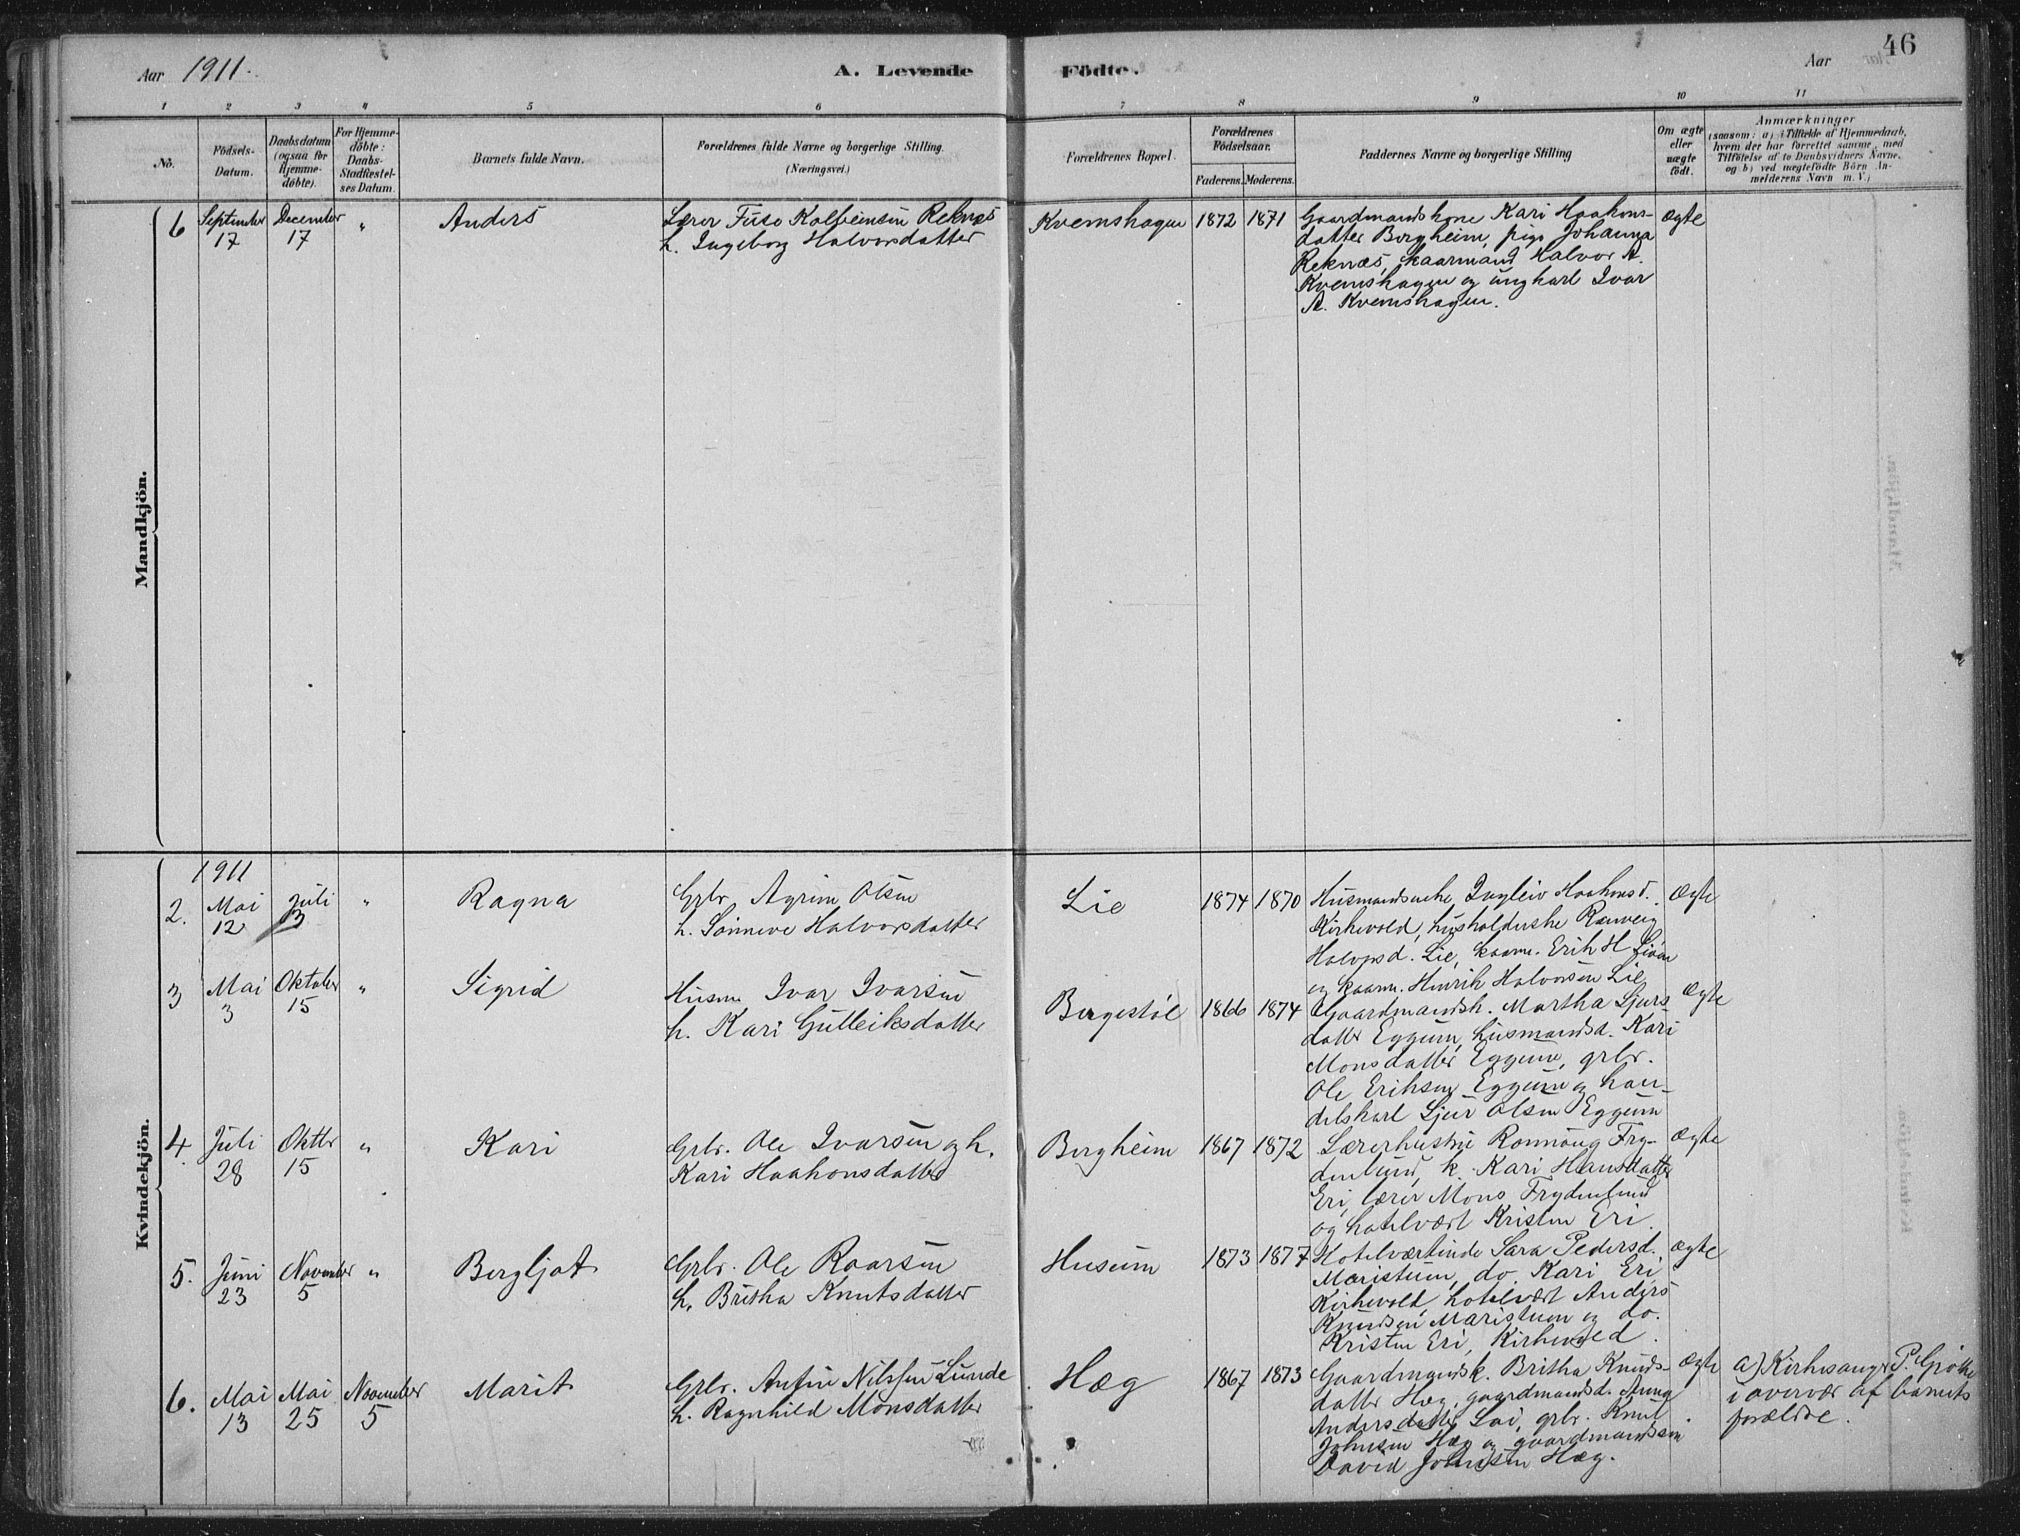 46
Aar 1911.
A. Levende Födte.
Aar
1 2 3 4 5 6 7 8 9 10 11
No.
Födsels-
Datum.
Daabsdatum
(ogsaa for
Hjemme-
döbte).
For Hjemme-
döbte:
Daabs-
Stadfæstel-
ses Datum.
Barnets fulde Navn.
Forældrenes fulde Navne og borgerlige Stilling.
(Næringsvei.)
Forældrenes Bopæl.
Forældrenes
Födselsaar.
Faderens. Moderens.
Faddernes Navne og borgerlige Stilling
Om ægte
eller
uægte
födt.
Anmærkninger
(saasom: a) i Tilfælde af Hjemmedaab,
hvem der har forrettet samme, med
Tilföielse af to Daabsvidners Navne,
og b) ved uægtefödte Börn An-
melderens Navn m. V.)
Mandkjön.
6
September
17
December
17
"
Anders
Lærer Fuse Kolbeinsen Reknes
h. Ingeborg Halvorsdatter
Kvemshagen
1872
1871
Gaardmandskone Kari Haakons-
datter Bergheim, pige Johanna
Reknæs, kaarmand Halvor A.
Kvemshagen og ungkarl Ivar
A. Kvemshagen.
Ægte
Kvindekjön.
1911
2.
Mai
12
Juli
"
Ragna
Grbr. Agrim Olsen
h. Sönneve Halvorsdatter
Lie
1874
1870
Husmandsenke Ingleiv Haakonsd.
Kirkevold, husholderske Ranveig
Halvorsd. Lie, kaarm. Erik H
og kaarm. Henrik Halvorsen Lie
Ægte
3
Mai
3
Oktober
15
"
Sigrid
Husm Ivar Ivarsen
h. Kari Gulleiksdatter
Bergestöl
1866
1874
Gaardmandsk. Martha Sjurs-
datter Eggum, husmandsd. Kari
Monsdatter Eggum, grbr.
Ole Eriksen Eggum og han-
delskarl Sjur Olsen Eggum
Ægte
4.
Juli
28
Oktbr
15
"
Kari
Grbr. Ole Ivarsen og h.
Kari Haakonsdatter
Bergheim
1867
1872
Lærerhustru Rannoug Fry-
denlund, k. Kari Hansdatter
Eri, lærer Mons Frydenlund
og hotelvært Kristen Eri.
Ægte
5.
Juni
23
November
5
"
Bergljot
Grbr. Ole Roarsen
h. Britha Knutsdatter
Husum
1873
1877
Hotelværtinde Sara Pedersd.
Maristuen, do. Kari Eri
Kirkevold, hotelvært Anders
Knudsen Maristuen og do.
Kristen Eri, Kirkevold.
Ægte
6.
Mai
13
Mai
25
November
5
Marit
Grbr. Anfin Nilssen Lunde
h. Ragnhild Monsdatter
Hæg
1867
1873
Gaardmandsk. Britha Knuds-
datter Hæg, gaardmandsd. Anna
Andersdatter Loi, grbr. Knut
Johnsen Hæg og gaardmandssøn
David Johnsen Hæg.
Ægte
a) Kirkesanger P. Grøthe
i overvær af barnets
forældre.